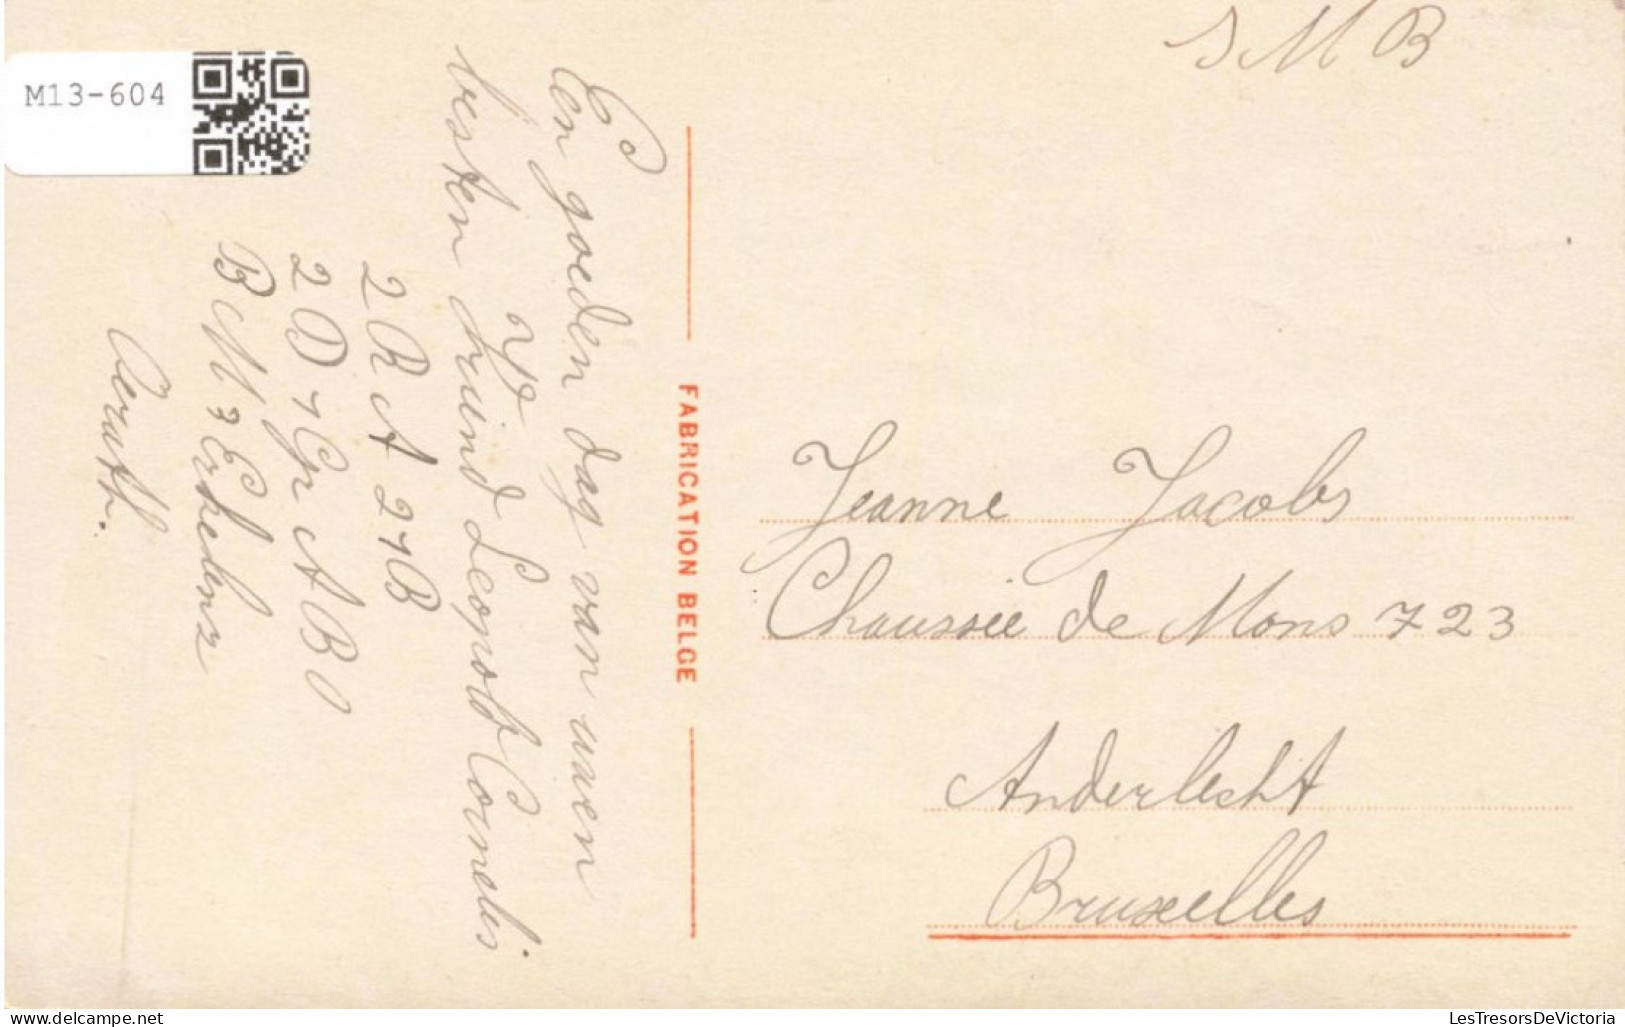 M13-604
S M B
Een goeden dag van uwen
besten friend Leopold Cornelis
2 R A 21 B
2 D 1 Gr A B
B M 3 Erkelenz
FABRICATION BELGE
Jeanne Jacobs
Chaussée de Mons 723
Anderlecht
Bruxelles
delcampe.net
LesTresorsDeVictoria